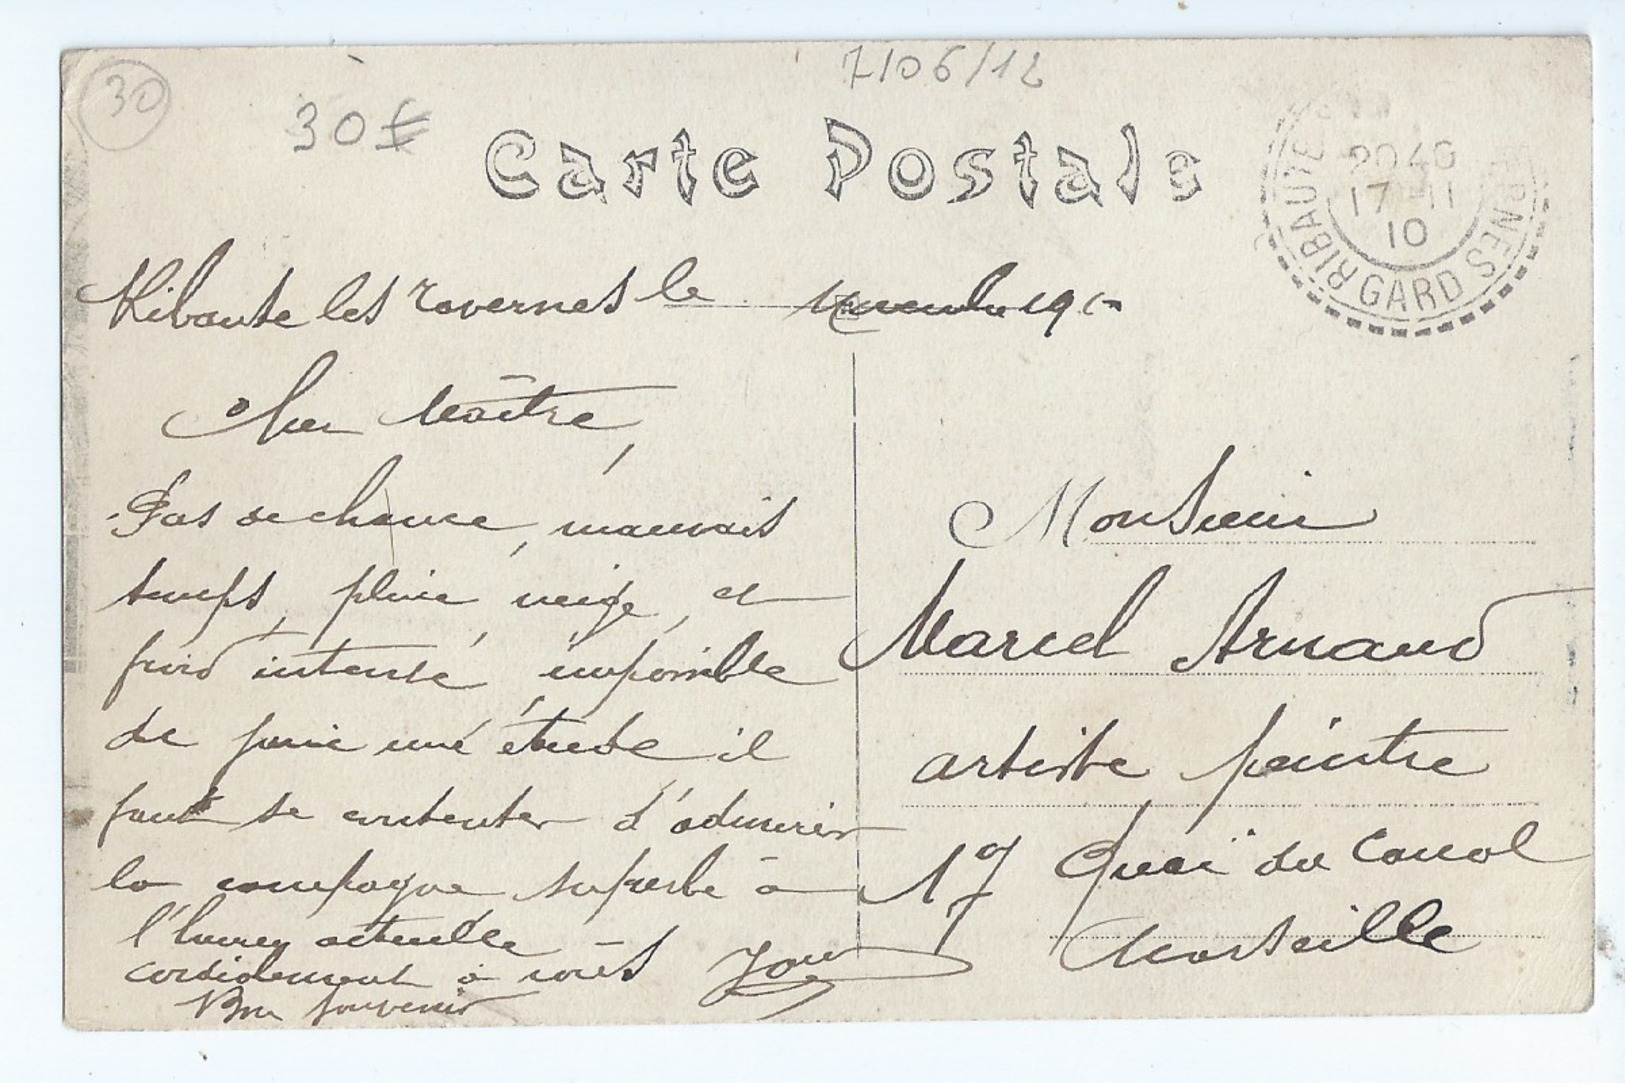 30
30€
7106/12
Carte Postale
RIBAUTE GARD
20 40
17 -11
10
Ribaute les Tavernes le novembre 1910
Cher Maître,
Pas de chance, mauvais
temps, pluie, neige, et
froid intense, impossible
de faire une étude il
faut se contenter d'admirer
la campagne superbe à
l'heure actuelle
cordialement à vous
Bon souvenir
Monsieur
Marcel Arnaud
artiste peintre
17 Quai du Canal
Marseille